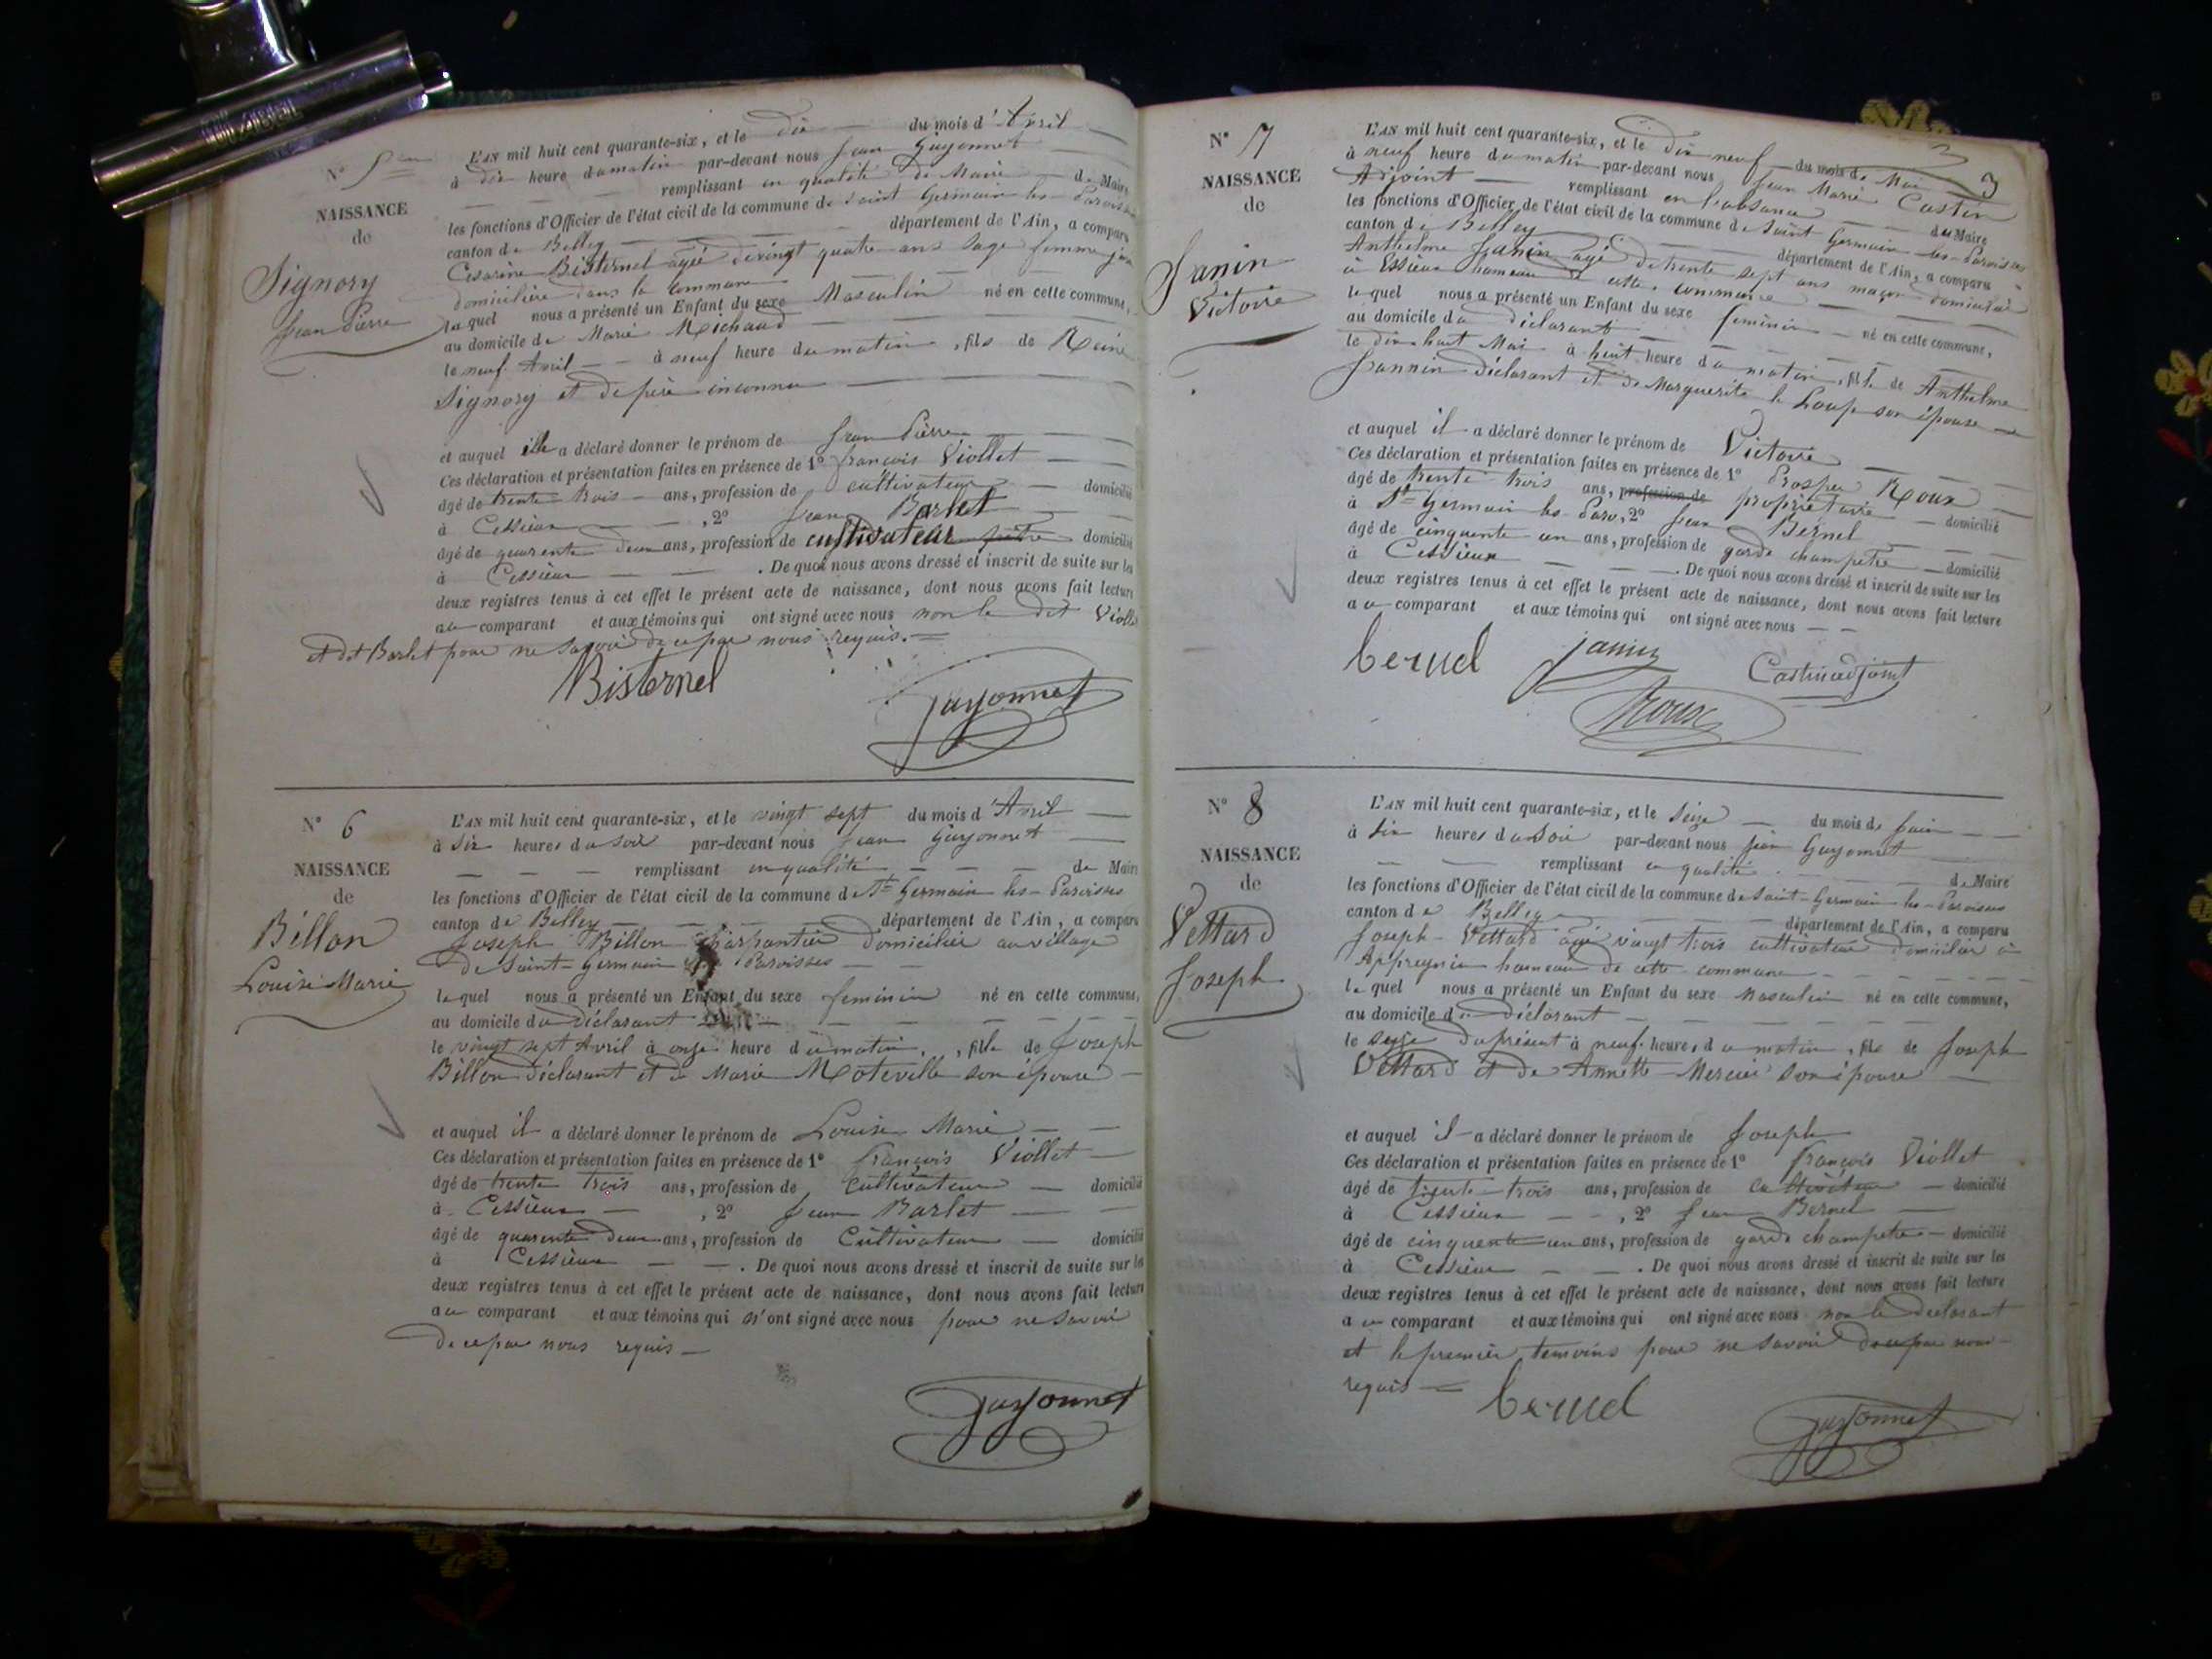 N° 5
NAISSANCE
de
Signory
Jean Pierre
L'AN mil huit cent quarante-six, et le dix du mois d'Avril
à dix heure du matin par-devant nous Jean Guyonnet
remplissant en qualité de Maire de Maire
les fonctions d'Officier de l'état civil de la commune de Saint Germain les Paroisses
canton de Belley département de l'Ain, a comparu
Cesarine Bisternel agée de vingt quatre ans Sage femme
domiciliée dans la commune
laquel nous a présenté un Enfant du sexe Masculin né en cette commune,
au domicile de Marie Michaud
le neuf Avril à neuf heure du matin, fils de Reine
Signory et de père inconnu
et auquel elle a déclaré donner le prénom de Jean Pierre
Ces déclaration et présentation faites en présence de 1° françois Viollet
âgé de trente trois ans, profession de cultivateur domicilié
à Cessieux, 2° Jean Barlet
âgé de quarente deux ans, profession de cultivateur domicilié
à Cessieux. De quoi nous avons dressé et inscrit de suite sur les
deux registres tenus à cet effet le présent acte de naissance, dont nous avons fait lecture
au comparant et aux témoins qui ont signé avec nous non le dit Viollet
et dit Barlet pour ne savoir de ce par nous requis.
Bisternel
Guyonnet
N° 6
NAISSANCE
de
Billon
Louise Marie
L'AN mil huit cent quarante-six, et le vingt sept du mois d'Avril
à Six heures du soir par-devant nous Jean Guyonnet
remplissant en qualité de Maire
les fonctions d'Officier de l'état civil de la commune de St Germain les Paroisses
canton de Belley département de l'Ain, a comparu
Joseph Billon Charpantier domicilié au village
de Saint-Germain les Paroisses
lequel nous a présenté un Enfant du sexe feminin né en cette commune,
au domicile du déclarant
le vingt sept Avril à onze heure du matin, fille de Joseph
Billon déclarant et de Marie Moteville son épouse
et auquel il a déclaré donner le prénom de Louise Marie
Ces déclaration et présentation faites en présence de 1° françois Viollet
âgé de trente trois ans, profession de Cultivateur domicilié
à Cessieux, 2° Jean Barlet
âgé de quarente deux ans, profession de Cultivateur domicilié
à Cessieux. De quoi nous avons dressé et inscrit de suite sur les
deux registres tenus à cet effet le présent acte de naissance, dont nous avons fait lecture
au comparant et aux témoins qui n'ont signé avec nous pour ne savoir
de ce par nous requis
Guyonnet
3
3
N° 7
NAISSANCE
de
Janin
Victoire
L'AN mil huit cent quarante-six, et le dix neuf du mois de Mai
à neuf heure du matin par-devant nous Jean Marie Castin
Adjoint remplissant en l'absence du Maire
les fonctions d'Officier de l'état civil de la commune de Saint Germain les Paroisses
canton de Belley département de l'Ain, a comparu
Anthelme Janin agé de trente sept ans maçon domicilié
à Essieux hameau de cette commune
lequel nous a présenté un Enfant du sexe feminin né en cette commune,
au domicile du déclarant
le dix huit Mai à huit heure du matin, fille de Anthelme
Jannin déclarant et de Marguerite le Loup son épouse
et auquel il a déclaré donner le prénom de Victoire
Ces déclaration et présentation faites en présence de 1° Prosper Roux
âgé de trente trois ans, profession de propriétaire domicilié
à St Germain les Paro, 2° Jean Bernel
âgé de cinquante un ans, profession de garde champetre domicilié
à Cessieux. De quoi nous avons dressé et inscrit de suite sur les
deux registres tenus à cet effet le présent acte de naissance, dont nous avons fait lecture
au comparant et aux témoins qui ont signé avec nous
bernel janin Castin adjoint
Roux
N° 8
NAISSANCE
de
Vettard
Joseph
L'AN mil huit cent quarante-six, et le Seize du mois de Juin
à Six heures du Soir par-devant nous Jean Guyonnet
remplissant en qualité de Maire
les fonctions d'Officier de l'état civil de la commune de Saint-Germain les-Paroisses
canton de Belley département de l'Ain, a comparu
Joseph Vettard agé vingt trois cultivateur domicilié à
Appregnin hameau de cette commune
lequel nous a présenté un Enfant du sexe Masculin né en cette commune,
au domicile du déclarant
le seize du présent à neuf heures du matin, fils de Joseph
Vettard et de Annette Mercier son épouse
et auquel il a déclaré donner le prénom de Joseph
Ces déclaration et présentation faites en présence de 1° françois Viollet
âgé de trente-trois ans, profession de cultivateur domicilié
à Cessieux, 2° Jean Bernel
âgé de cinquente un ans, profession de garde champetre domicilié
à Cessieux. De quoi nous avons dressé et inscrit de suite sur les
deux registres tenus à cet effet le présent acte de naissance, dont nous avons fait lecture
au comparant et aux témoins qui ont signé avec nous non le declarant
et le premier temoins pour ne savoir de ce par nous
requis
bernel
Guyonnet